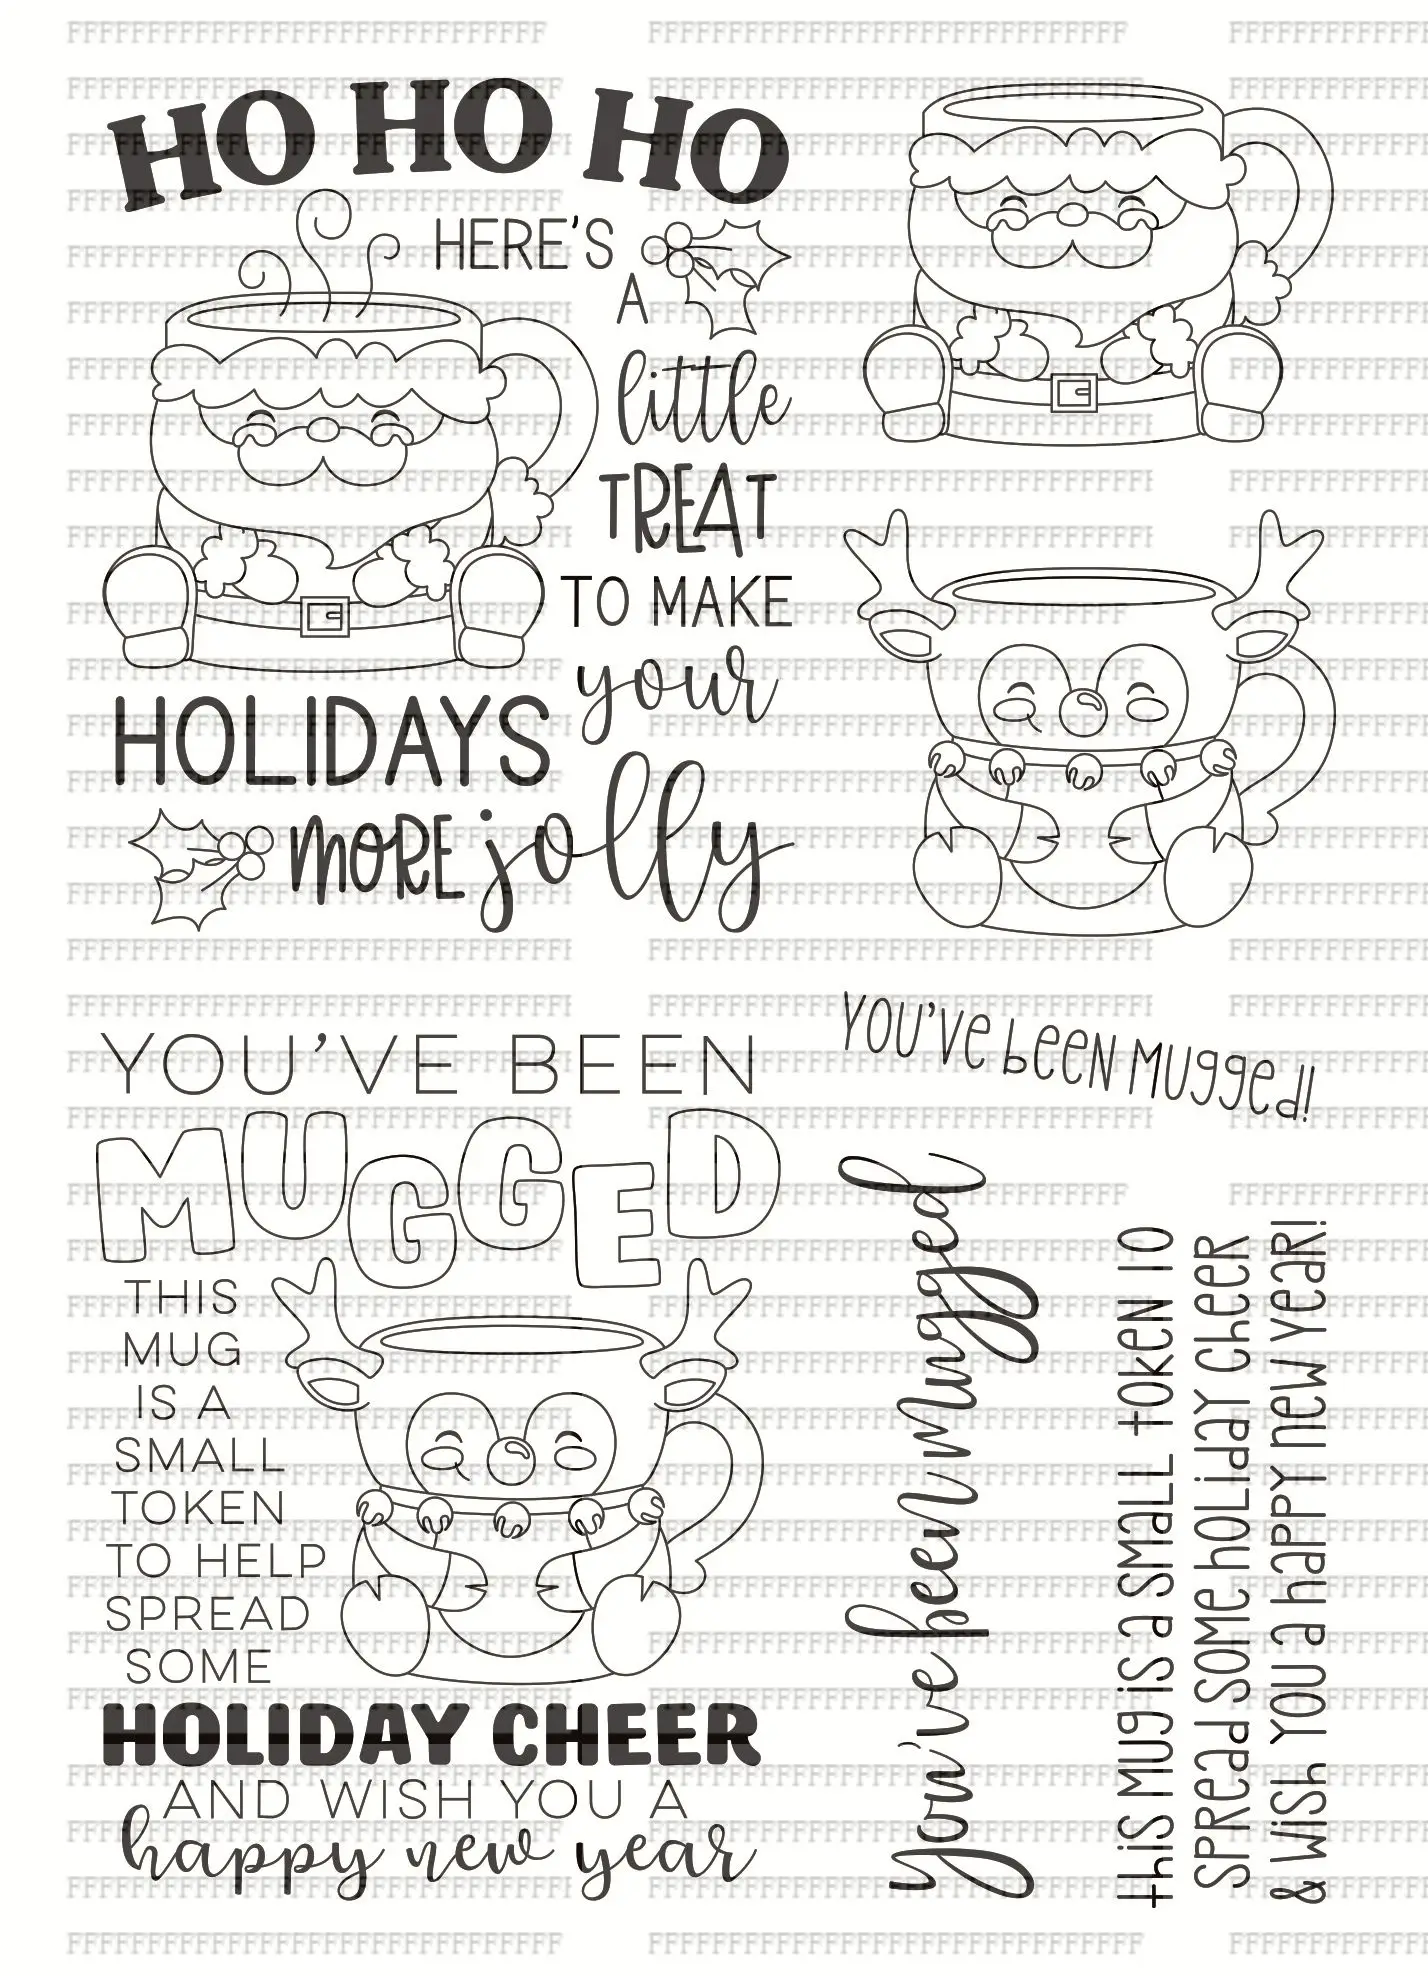 HO HO HO
HERE'S
A
little
TREAT
TO MAKE
your
HOLIDAYS
MORE jolly
YOU'VE BEEN
MUGGED
THIS
MUG
IS A
SMALL
TOKEN
TO HELP
SPREAD
SOME
HOLIDAY CHEER
AND WISH YOU A
happy new year
YOU'VE BEEN MUGGED!
you've been mugged
THIS MUG IS A SMALL TOKEN TO
SPREAD SOME HOLIDAY CHEER
& WISH YOU A HAPPY NEW YEAR!